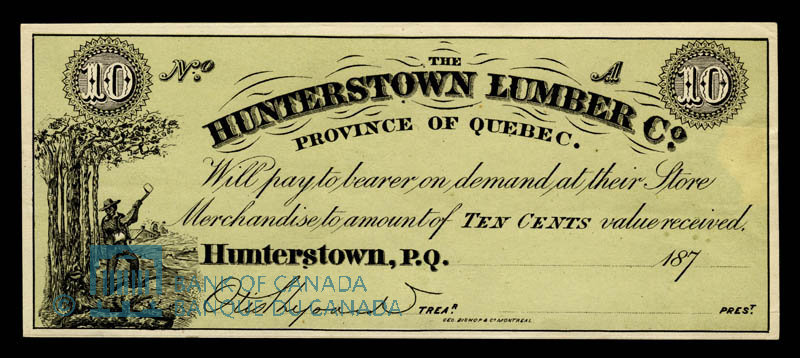 10 No. A 10
THE
HUNTERSTOWN LUMBER Co.
PROVINCE OF QUEBEC.
Will pay to bearer, on demand, at their Store
Merchandise to amount of TEN CENTS value received.
Hunterstown, P.Q. 187
TREAR. PREST.
GEO. BISHOP & CO. MONTREAL
© BANK OF CANADA
BANQUE DU CANADA